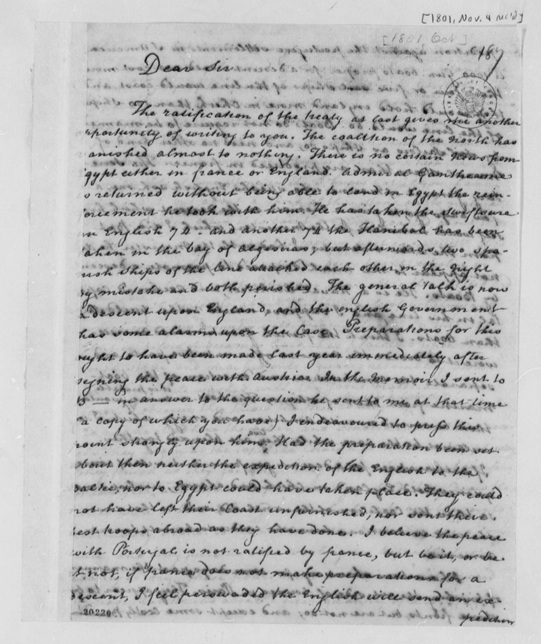 [1801, Nov. 4 rec'd]
[1801 Oct]
187
Dear Sir
The ratification of the treaty at last gives me another
pportunity of writing to you. The coalition of the north has
anished almost to nothing. There is no certain news from
gypt either in france or England. admiral Gantheaume
s returned without being able to land in Egypt the rein-
orcement he took with him. He has taken the swiftsure
n English 74. and another 74 the Hanibal has been
aken in the bay of algeciras; but afterwards two spa-
nish ships of the line attacked each other in the night
y mistake and both perished. The general talk is now
a descent upon England, and the english Government
has some alarms upon the Case. Preparations for this
ught to have been made last year immediately after
signing the peace with Austria. In the Memoir I sent to
B — in answer to the question he sent to me at that time
a copy of which you have) I endeavoured to press this
point strongly upon him. Had the preparation been set
about then neither the expedition of the English to the
altic, nor to Egypt could have taken place. They could
not have left their Coast unpunished, nor sent there
est troops abroad as they have done. I beleive the peace
with Portugal is not ratified by france, but be it, or be
t not, if france does not make preparations for a
escent, I feel perswaded the English will send an ex-
pedition
20220